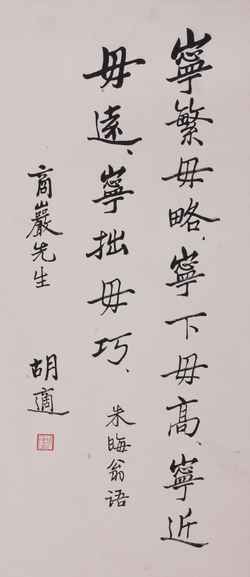 寧繁毋略、寧下毋高、寧近
毋遠、寧拙毋巧、
朱晦翁语
商巖先生
胡適